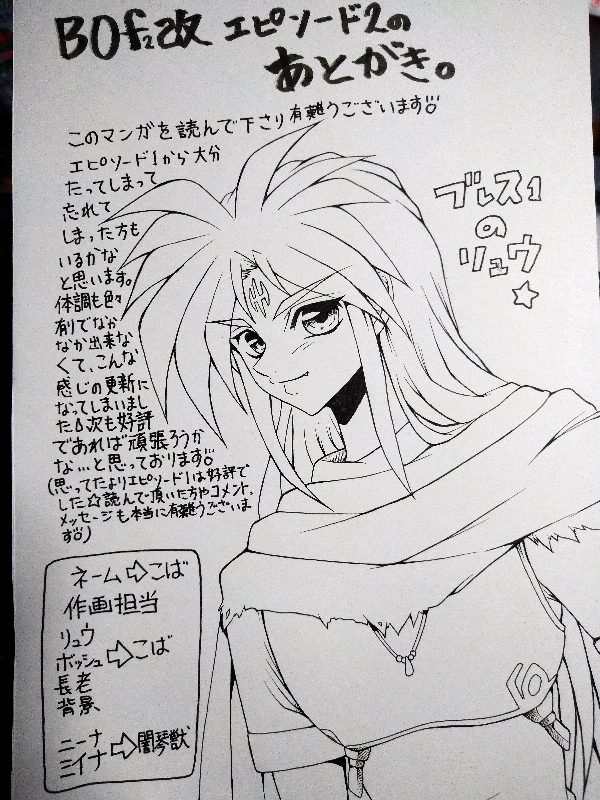 BOf2改 エピソード2の
あとがき。
このマンガを読んで下さり有難うございます!!!
エピソード1から大分
たってしまって
忘れて
しまった方も
いるかな
と思います。
体調も色々
有りでなか
なか出来な
くて、こんな
感じの更新に
なってしまいまし
た。次も好評
であれば頑張ろうか
な…と思っております!!!
(思ってたよりエピソード1は好評で
した☆読んで頂いた方やコメント、
メッセージも本当に有難うございま
す!!!)
ブレス1
の
リュウ
☆
ネーム⇨こば
作画担当
リュウ
ボッシュ⇨こば
長老
背景
ニーナ
ミイナ⇨闇琴獣